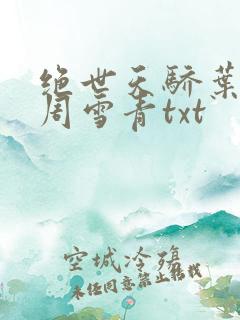 绝世天骄叶
周雪青txt
空城冷殇
未经同意禁止转载